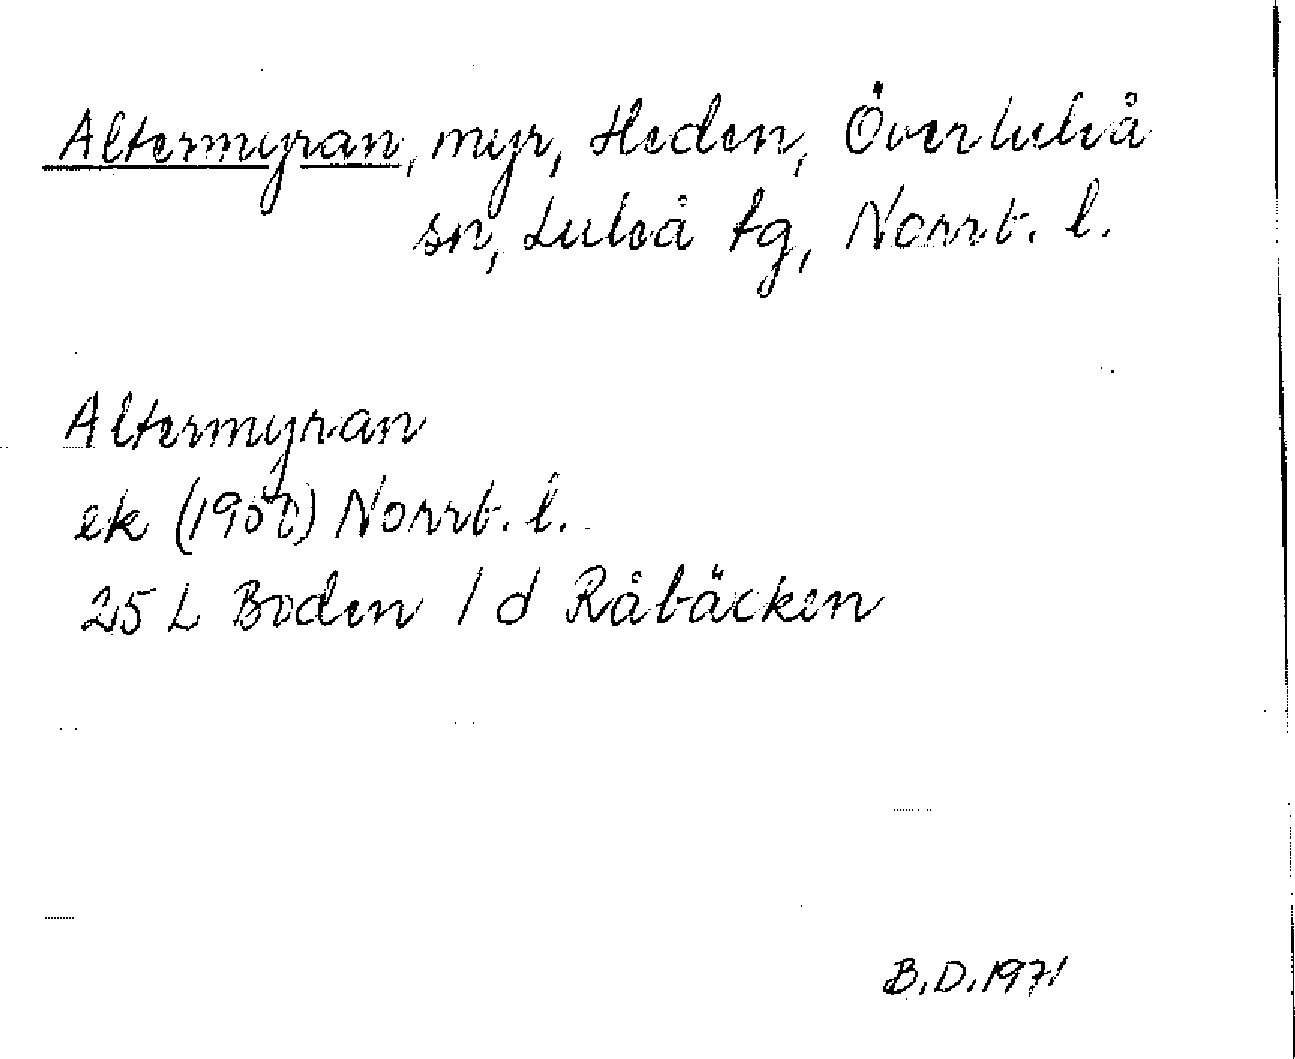 Altermyran, myr, Heden, Överluleå
sn, Luleå tg, Norrb. l.
Altermyran
ek Norrb. l.
25 L Boden 1 d Råbäcken
B.D. 1971